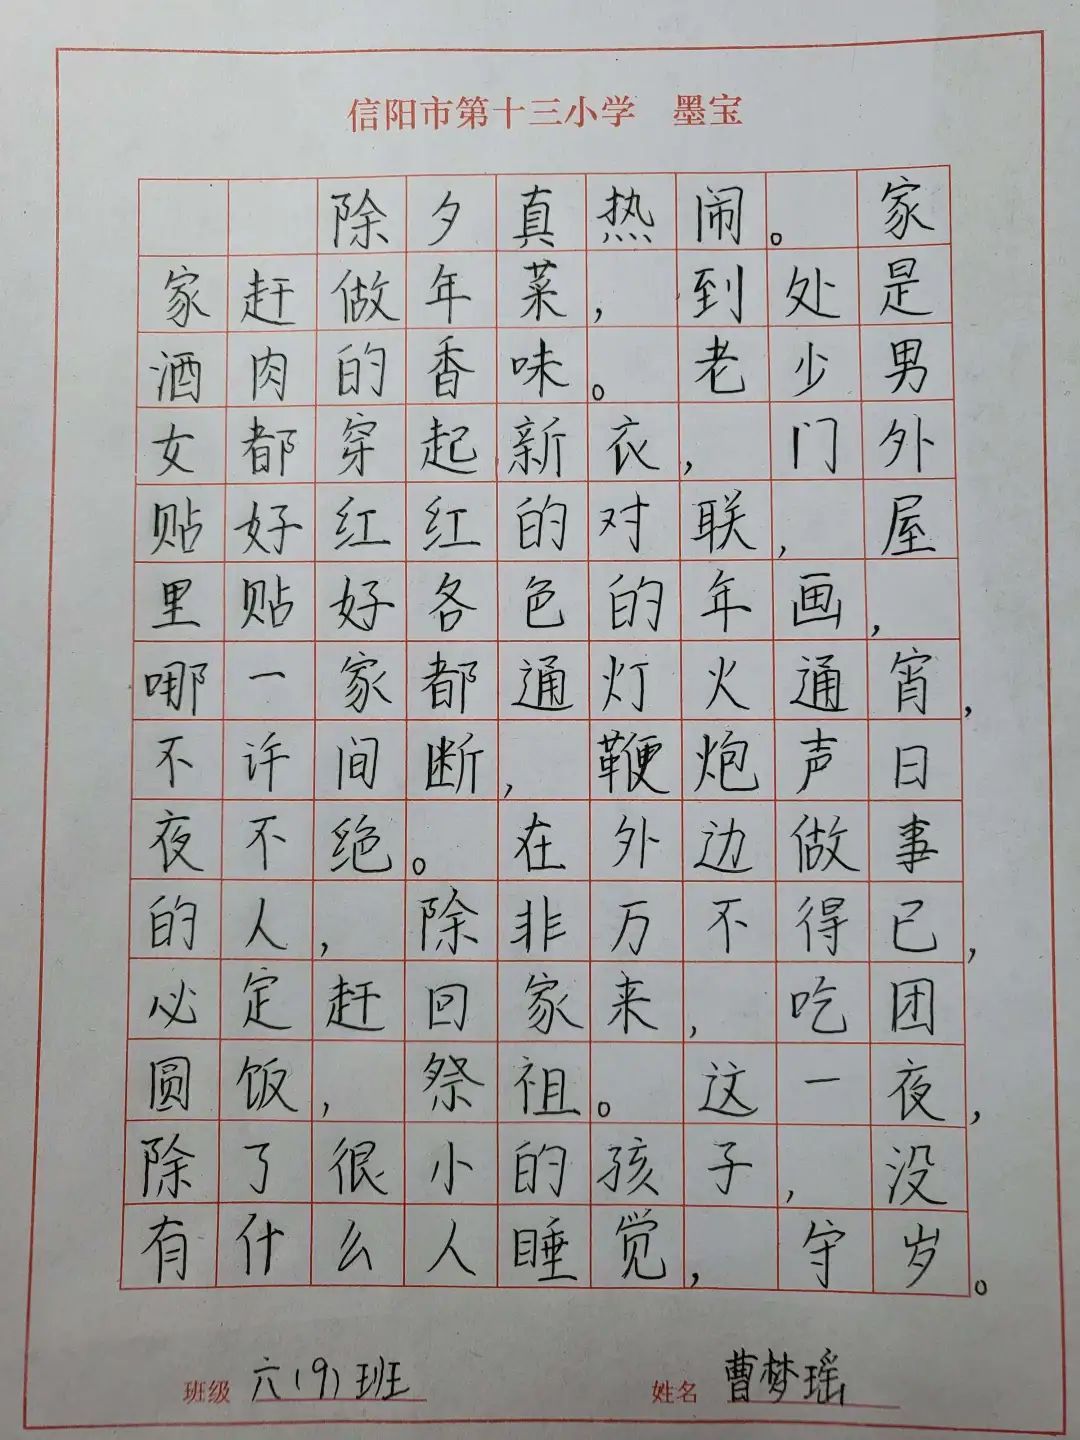 信阳市第十三小学 墨宝
除夕真热闹。家
家赶做年菜，到处是
酒肉的香味。老少男
女都穿起新衣，门外
贴好红红的对联，屋
里贴好各色的年画，
哪一家都通灯火通宵，
不许间断，鞭炮声日
夜不绝。在外边做事
的人，除非万不得已，
必定赶回家来，吃团
圆饭，祭祖。这一夜，
除了很小的孩子，没
有什么人睡觉，守岁。
班级 六(9)班 姓名 曹梦瑶